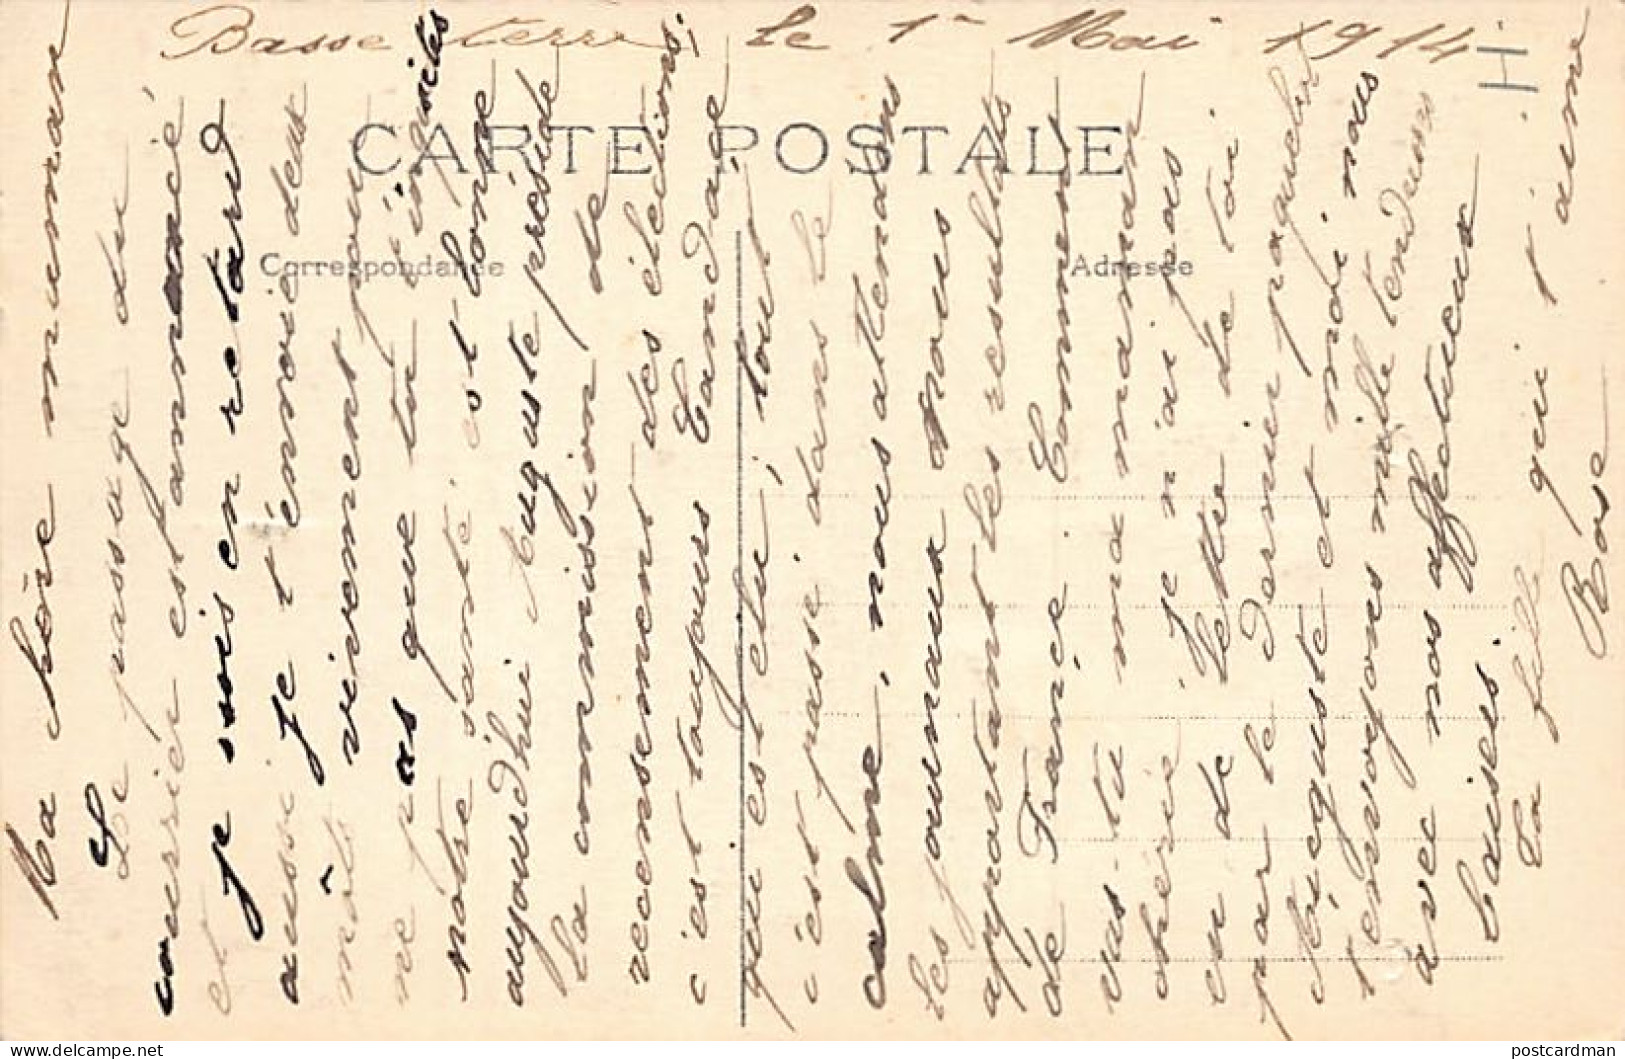 Basse terre, Le 1er Mai 1914
H
CARTE POSTALE
Correspondance
Adresse
Ma chère maman
Le passage du
courrier est annoncé
et je suis en retard
aussi je t'envoie deux
mots vivement pour
ne pas que tu t'inquiètes
notre santé est bonne
aujourd'hui Auguste préside
la commission de
recensement des élections,
c'est toujours Candace
qui est élu, tout
c'est passé dans le
calme, nous attendons
les journaux nous
apportant les resultats
de France. Comment
vas-tu ma maman
cherie, je n'ai pas
eu de lettre de toi
par le dernier paquebot
Auguste et moi nous
t'envoyons mille tendresses
avec nos affectueux
baisers.
La fille qui t'aime
Rose
postcardman